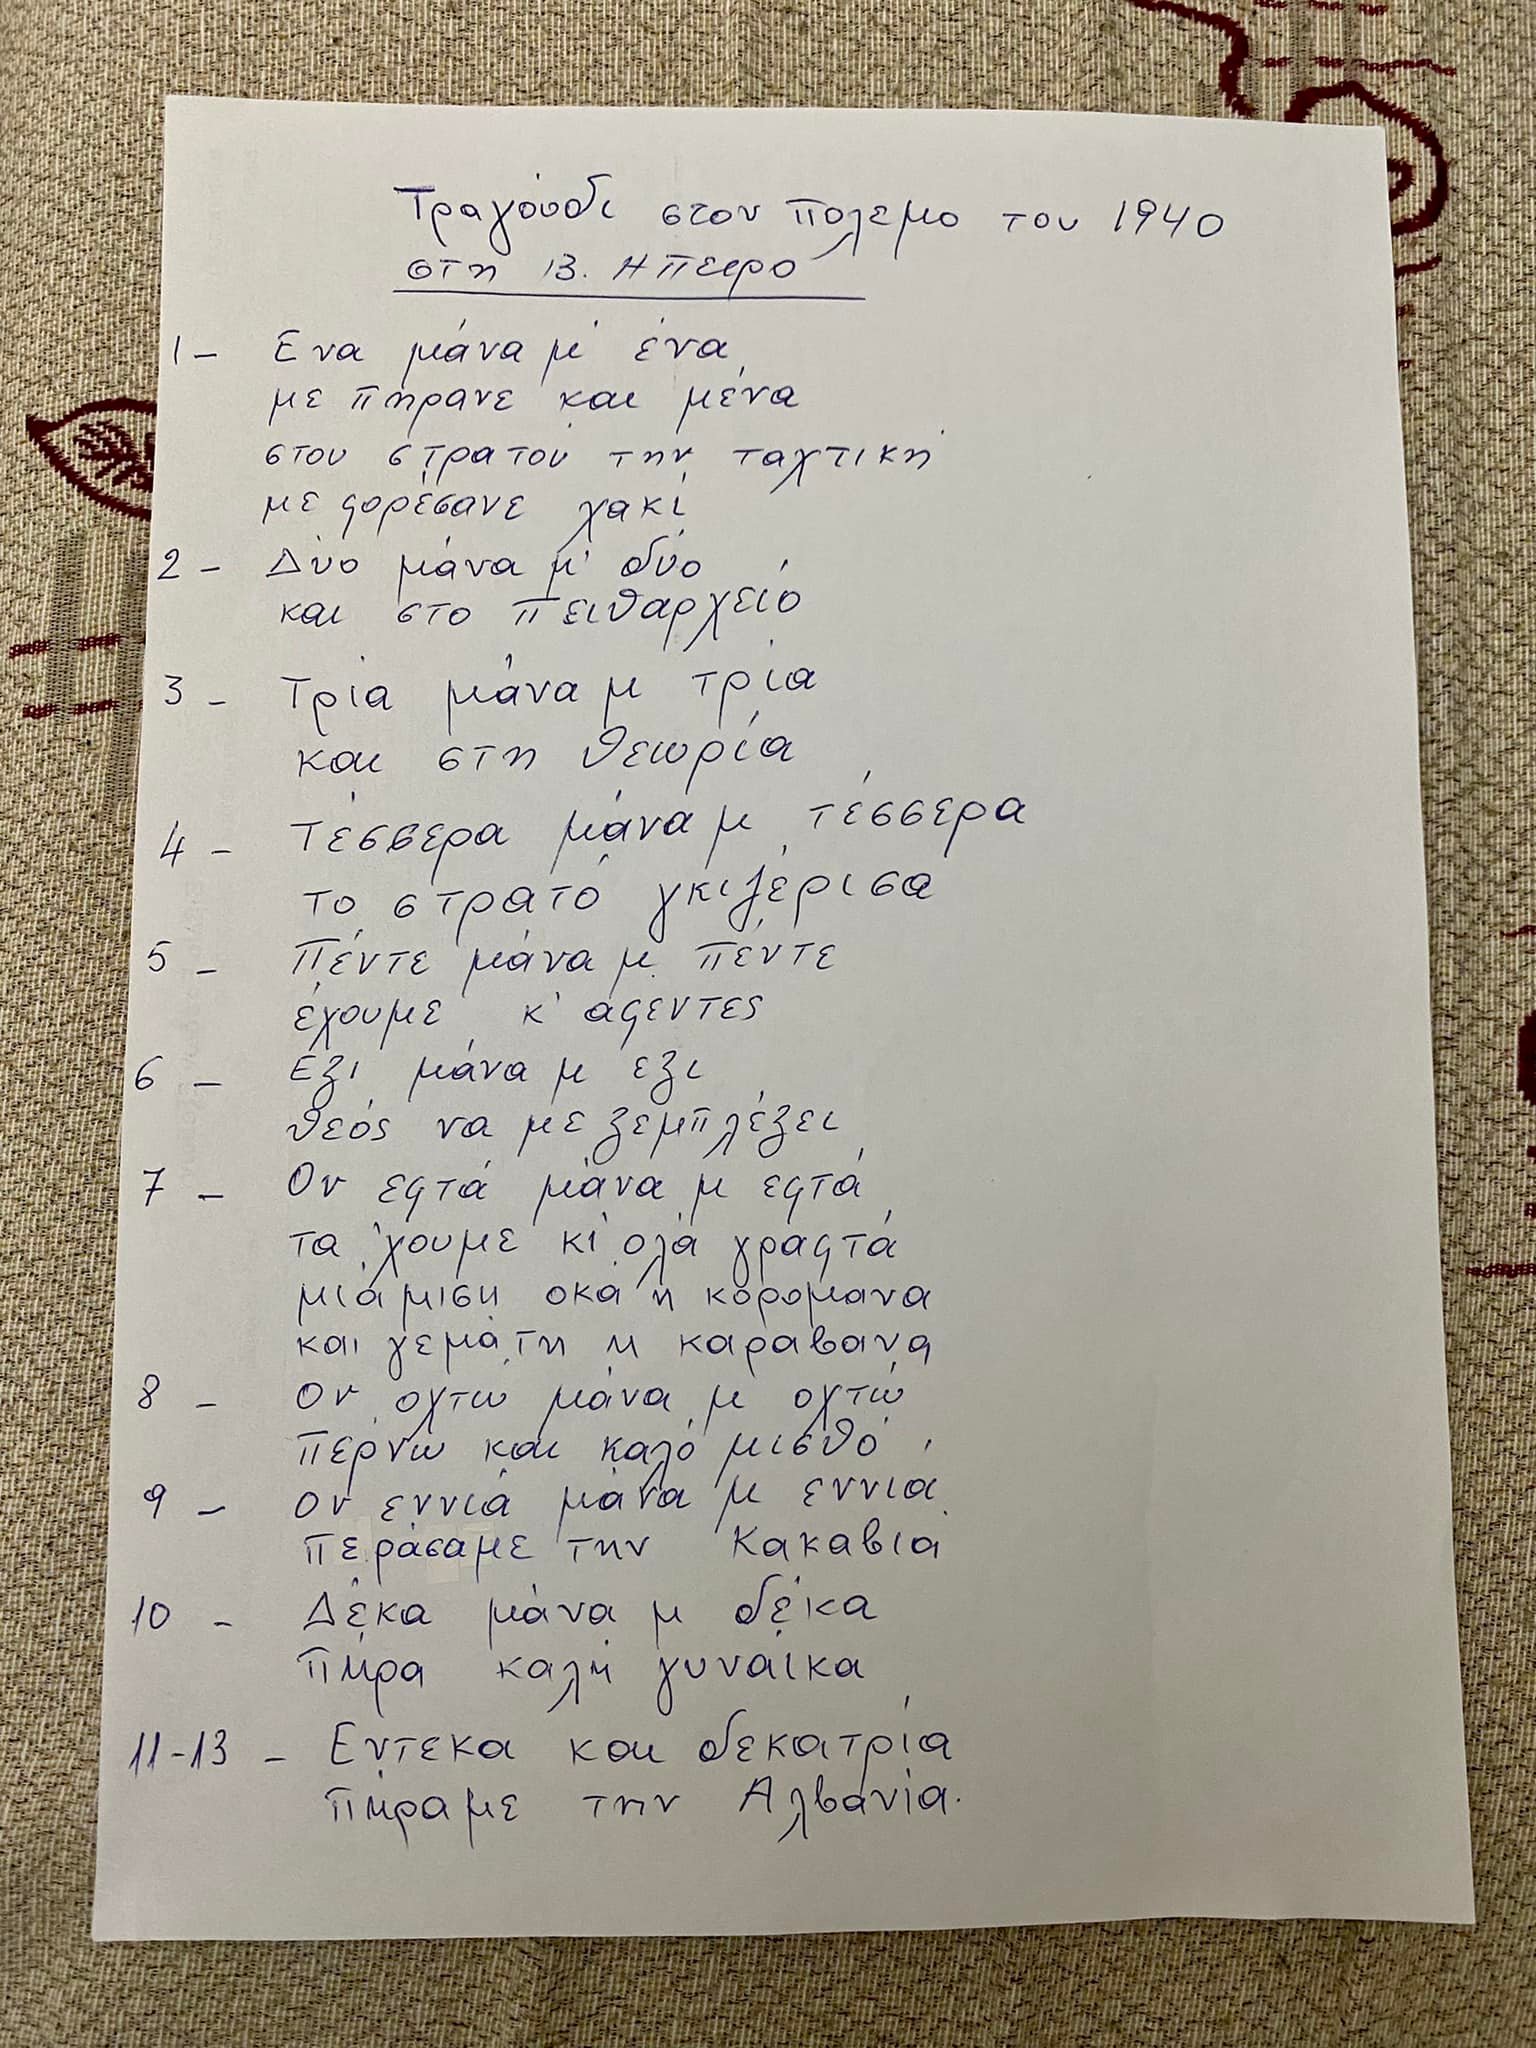 Τραγούδι στον πολεμο του 1940
στη Β. Ηπειρο
1- Ενα μάνα μ' ένα
με πηρανε και μένα
στου στρατού την ταχτική
με φορέσανε χακί
2- Δύο μάνα μ' δύο
και στο πειθαρχείό
3- Τρία μάνα μ τρία
και στη θεωρία
4- Τέσσερα μάνα μ τέσσερα
το στρατό γκιζέρισα
5- Πέντε μάνα μ πέντε
έχουμε κ' αφεντες
6- Εξι μάνα μ εξι
θεός να με ξεμπλέξει
7- Ον εφτά μάνα μ εφτά
τα 'χουμε κι όλα γραφτά
μιά μιση οκά η κορομανα
και γεμάτη η καραβανα
8- Ον οχτώ μάνα μ οχτώ
περνω και καλό μισθό
9- Ον εννιά μάνα μ εννιά
περάσαμε την Κακαβιά
10- Δέκα μάνα μ δέκα
πήρα καλή γυναίκα
11-13- Εντεκα και δεκατρία
πήραμε την Αλβανία.